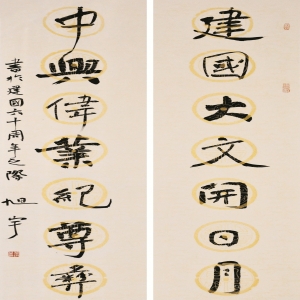 建國大文開日月
中興偉業紀尊彝
書於建國六十周年之際 旭宇